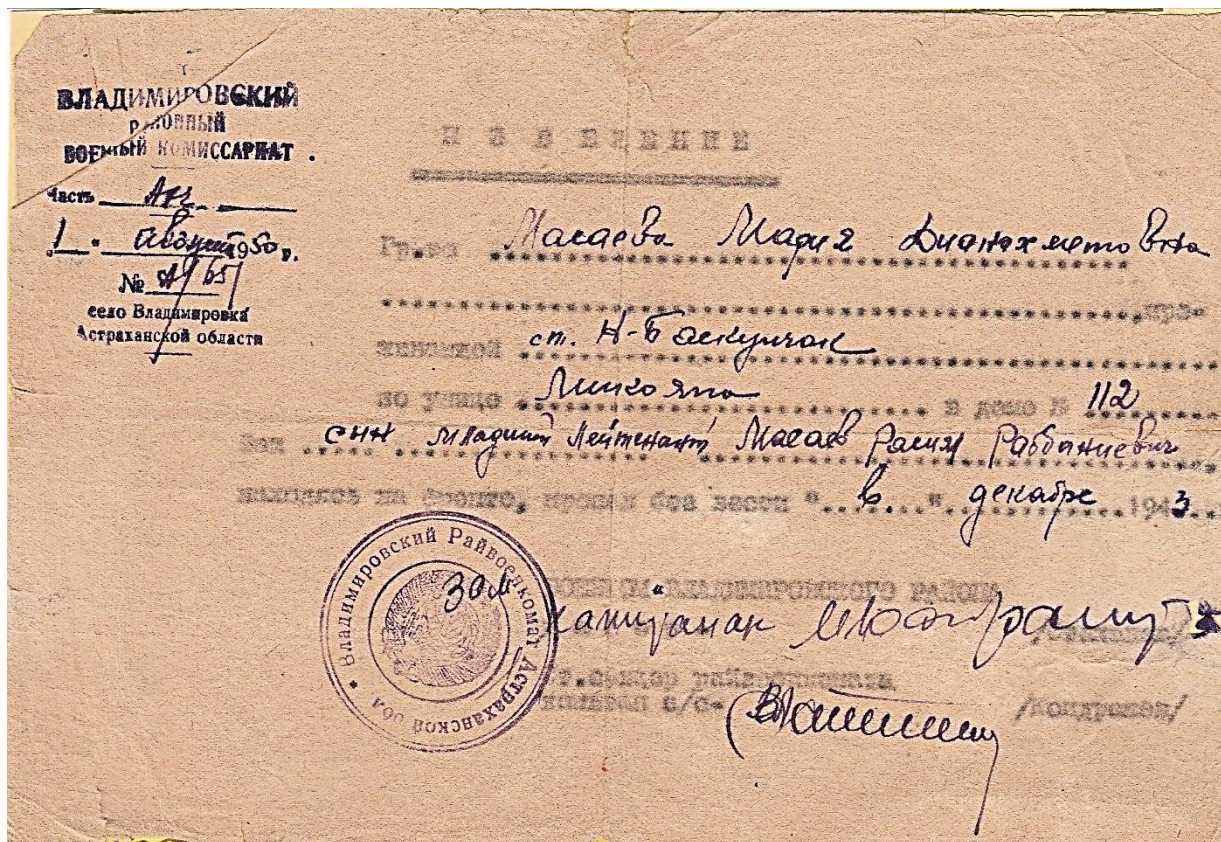 ВЛАДИМИРОВСКИЙ
РАЙОННЫЙ
ВОЕННЫЙ КОМИССАРИАТ.
Часть
"1" август 1950 г.
№
село Владимировка
Астраханской области
ИЗВЕЩЕНИЕ
Гр-ке Масаева Мария
, про-
живающей ст. Н-Баскунчак
по улице Микояна в доме № 112
Ваш сын младший лейтенант Масаев Расим Раббаниевич
находясь на фронте, пропал без вести "в" декабре 1943
ВЛАДИМИРОВСКОГО РАЙОНА
Капитан
райвоенкомата
/Кондрашов/
Владимировский Райвоенкомат Астраханской обл